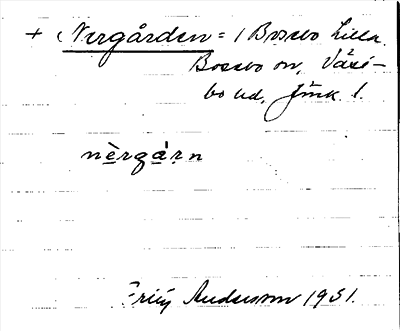 + Nergården = / Bosebo Lilla.
Bosebo sn, Väst-
bo hd, Jönk. l.
nèrgárn
Frilíf Andersson 1931.